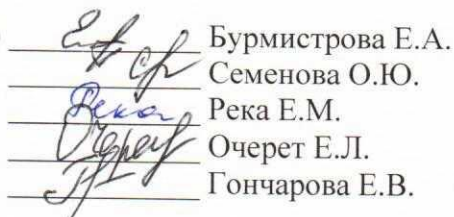 Бурмистрова Е.А.
Семенова О.Ю.
Река Река Е.М.
Очерет Очерет Е.Л.
Гончарова Е.В.